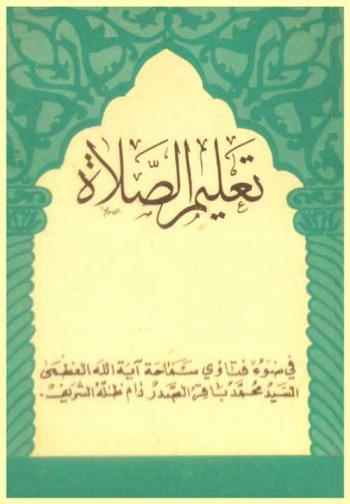 تعليم الصَّلاة
في ضوء فتاوي سماحة آية الله العظمى
السيد محمد باقر الصدر دام ظله الشريف.